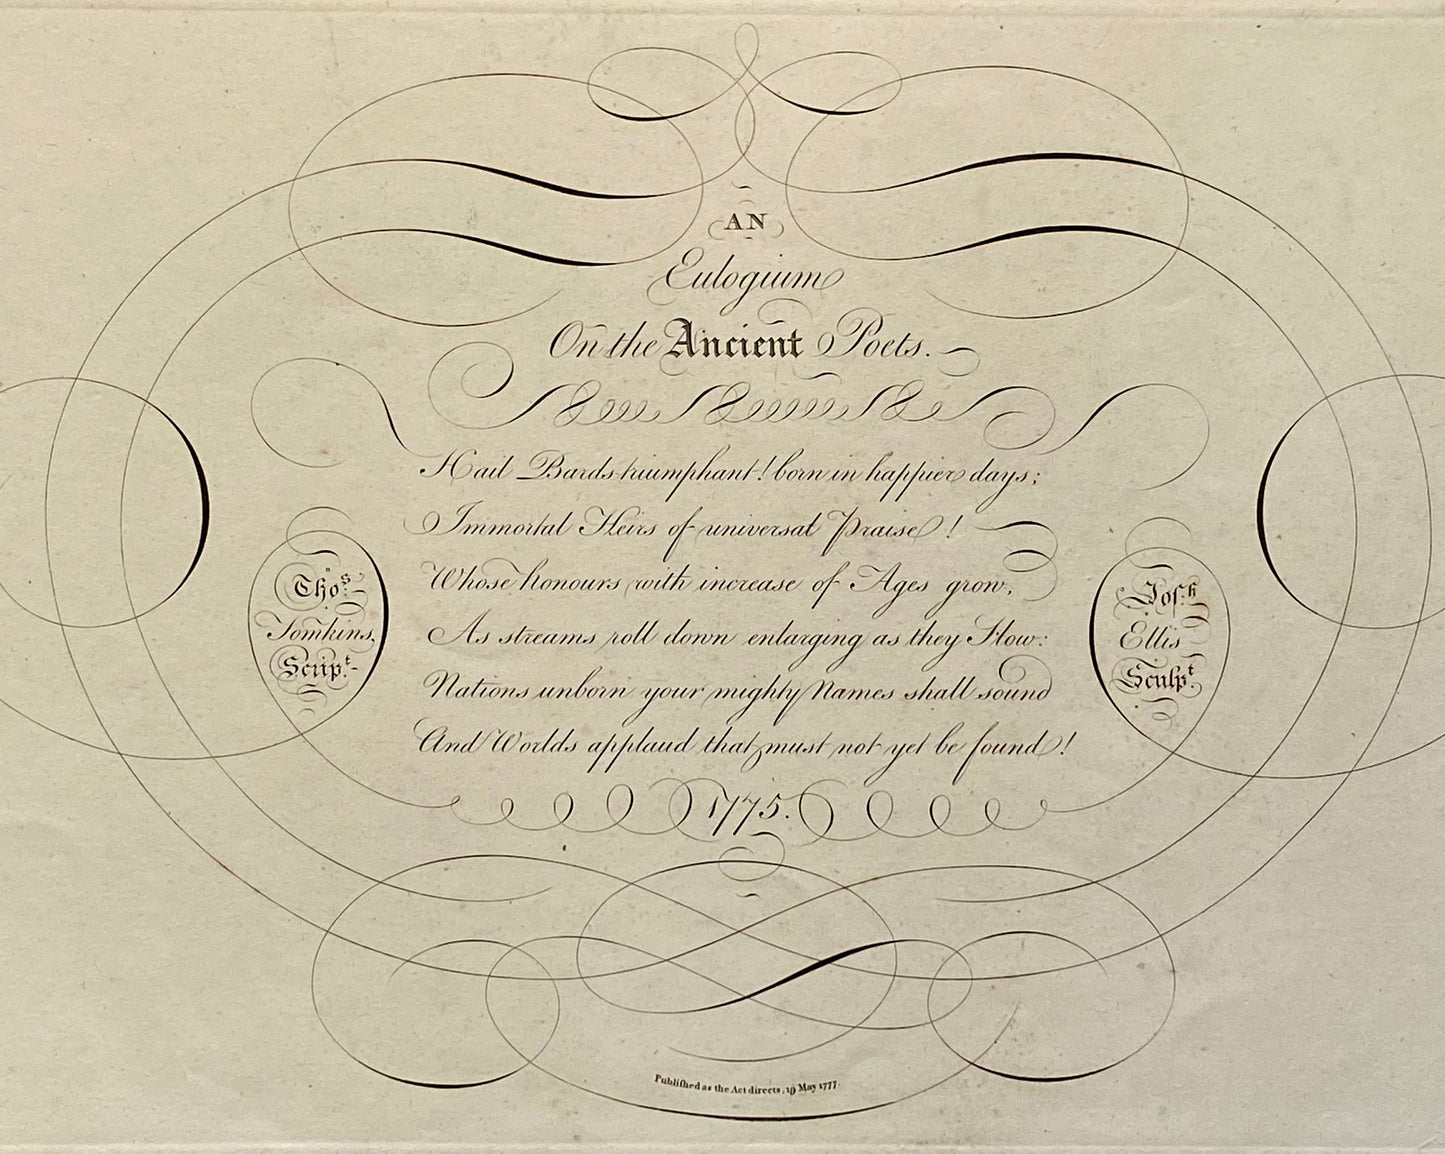 AN
Eulogium
On the Ancient Poets.
Hail Bards triumphant! born in happier days;
Immortal Heirs of universal Praise!
Whose honours with increase of Ages grow,
As streams roll down enlarging as they flow:
Nations unborn your mighty Names shall sound
And Worlds applaud that must not yet be found!
1775.
Thos.
Tomkins,
Script.
Josh.
Ellis
Sculpt.
Publiſhed as the Act directs, 19 May 1777.